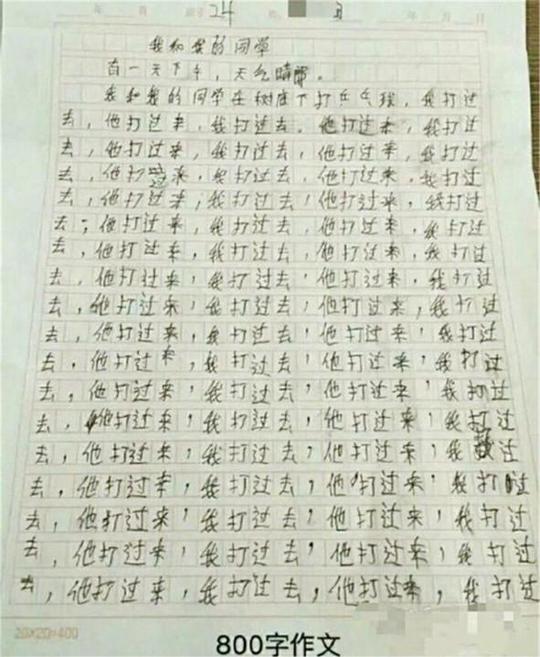 24
我和我的同学
有一天下午，天气晴。
我和我的同学在树底下打乒乓球，我打过
去，他打过来，我打过去，他打过来，我打过
去，他打过来，我打过去，他打过来，我打过
去，他打过来，我打过去，他打过来，我打过
去，他打过来，我打过去，他打过来，我打过
去，他打过来，我打过去，他打过来，我打过
去，他打过来，我打过去，他打过来，我打过
去，他打过来，我打过去，他打过来，我打过
去，他打过来，我打过去，他打过来，我打过
去，他打过来，我打过去，他打过来，我打过
去，他打过来，我打过去，他打过来，我打过
去，他打过来，我打过去，他打过来，我打过
去，他打过来，我打过去，他打过来，我打过
去，他打过来，我打过去，他打过来，我过
去，他打过来，我打过去，他打过来，我打过
去，他打过来，我打过去，他打过来，我打过
去，他打过来，我打过去，他打过来，我打过
去，他打过来，我打过去，他打过来，我打过
20×20=400
800字作文